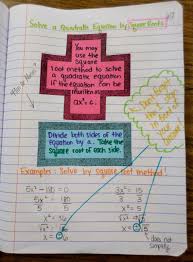 Solve a Quadratic Equation by Square Roots
You may
use the
square
root method to solve
a quadratic equation
if the equation can be
rewritten in
ax² = c.
Divide both sides of the
equation by a. Take the
square root of each side.
Examples: Solve by square root method!
5x² - 180 = 0
3x² = 15
5x² = 180
5
3
3
x² = 36
x² = 5
x = ± 6
x = ± √5
does not
simplify